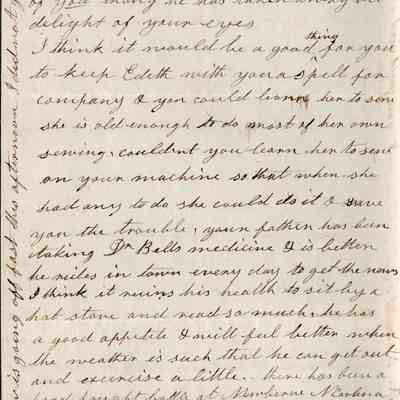 of you many he has taken away the
delight of your eyes
I think it would be a good thing for you
to keep Edeth with you a spell for
company & you could learn her to sew
she is old enough to do most of her own
sewing, couldent you learn her to sew
on your machine so that when she
had any to do she could do it & save
you the trouble, your father has been
taking Dr Bells medicine & is better
he rides in town every day to get the news
I think it ruins his health to sit by a
hot stove and read so much, he has
a good appetite & will feel better when
the weather is such that he can get out
and exercise a little. there has been a
hard fought battle at Newberne N Carlina
is going off past this afternoon I did not